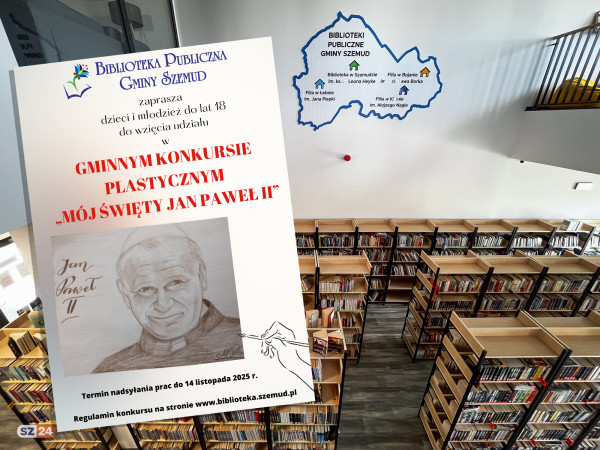 Biblioteka Publiczna
Gminy Szemud
zaprasza
dzieci i młodzież do lat 18
do wzięcia udziału
w
GMINNYM KONKURSIE
PLASTYCZNYM
„MÓJ ŚWIĘTY JAN PAWEŁ II”
Jan
Paweł
II
Termin nadsyłania prac do 14 listopada 2025 r.
Regulamin konkursu na stronie www.biblioteka.szemud.pl
BIBLIOTEKI
PUBLICZNE
GMINY SZEMUD
Biblioteka w Szemudzie
im. ks. Leona Heyke
Filia w Bojanie
Filia w Łebnie
im. Jana Piepki
Filia w
im. Alojzego Nagla
SZ24